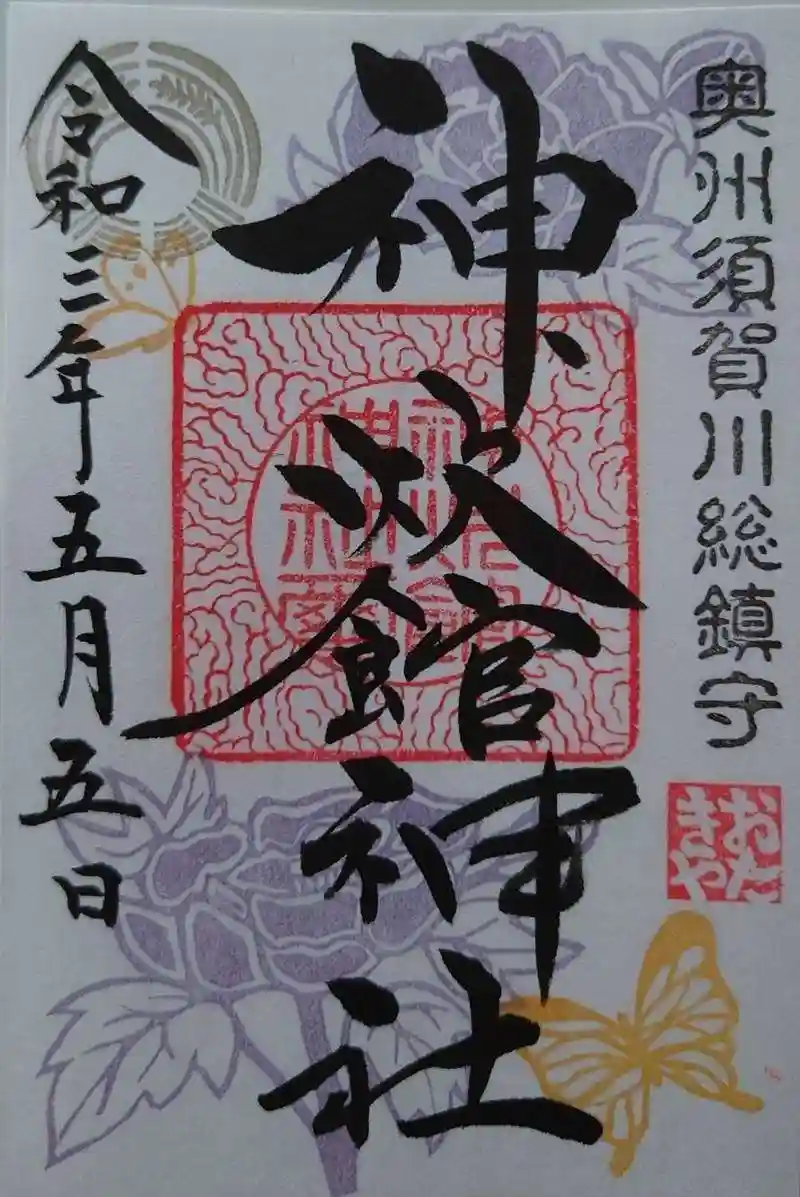 奥州須賀川総鎮守
おたきや
神炊館神社
令和三年五月五日